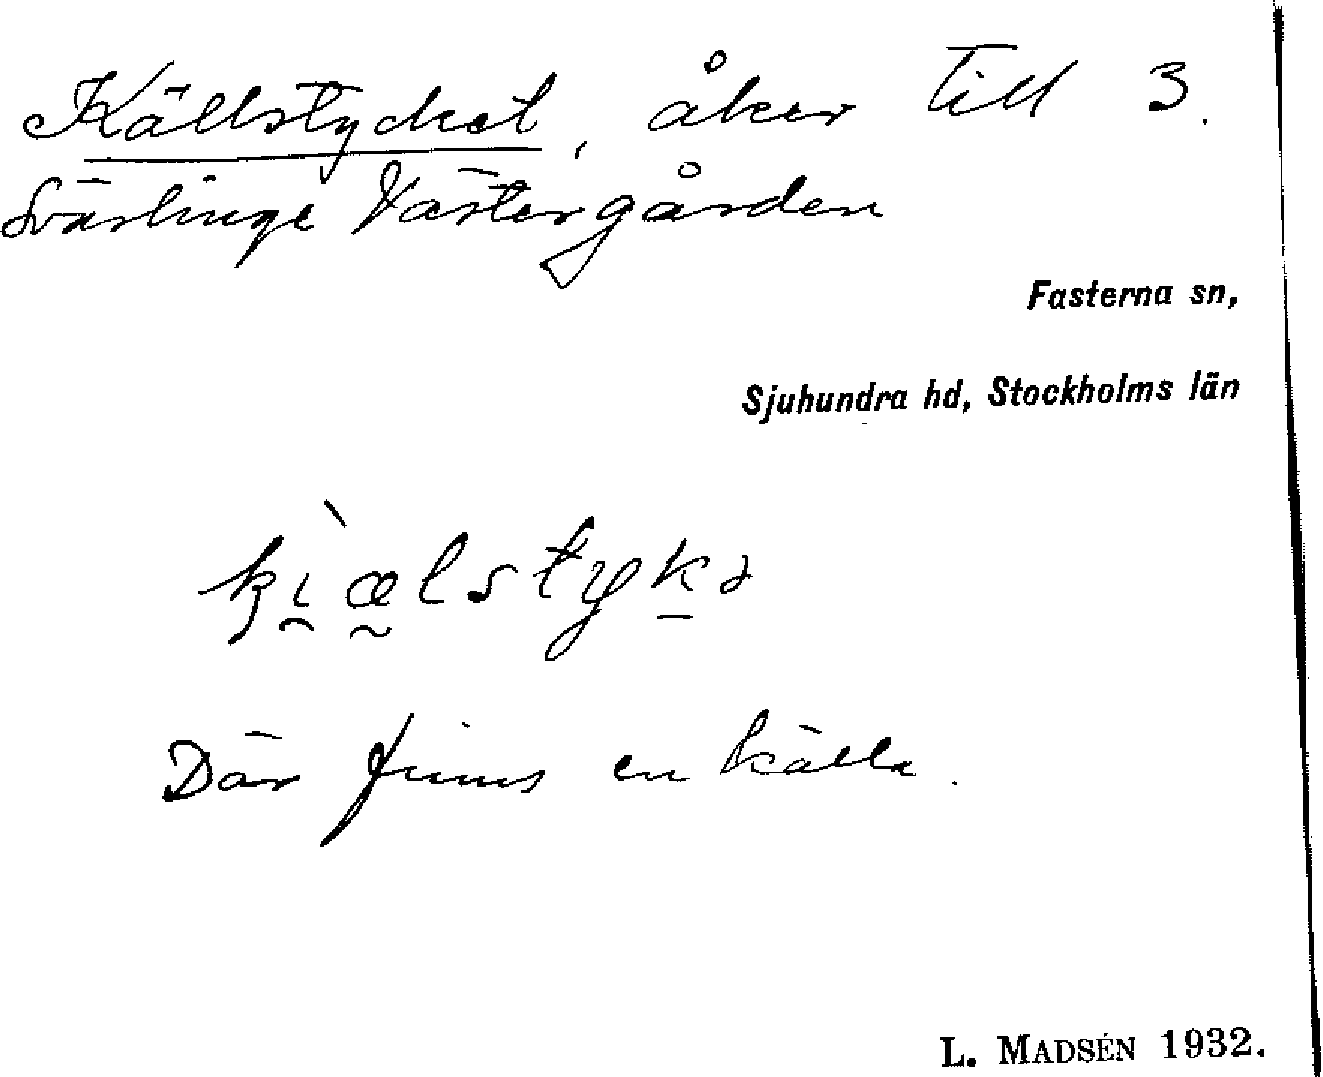 Källstycket, åker till 3.
Svärlinge Västergården
Fasterna sn,
Sjuhundra hd, Stockholms län
Där finns en källa.
L. MADSÉN 1932.